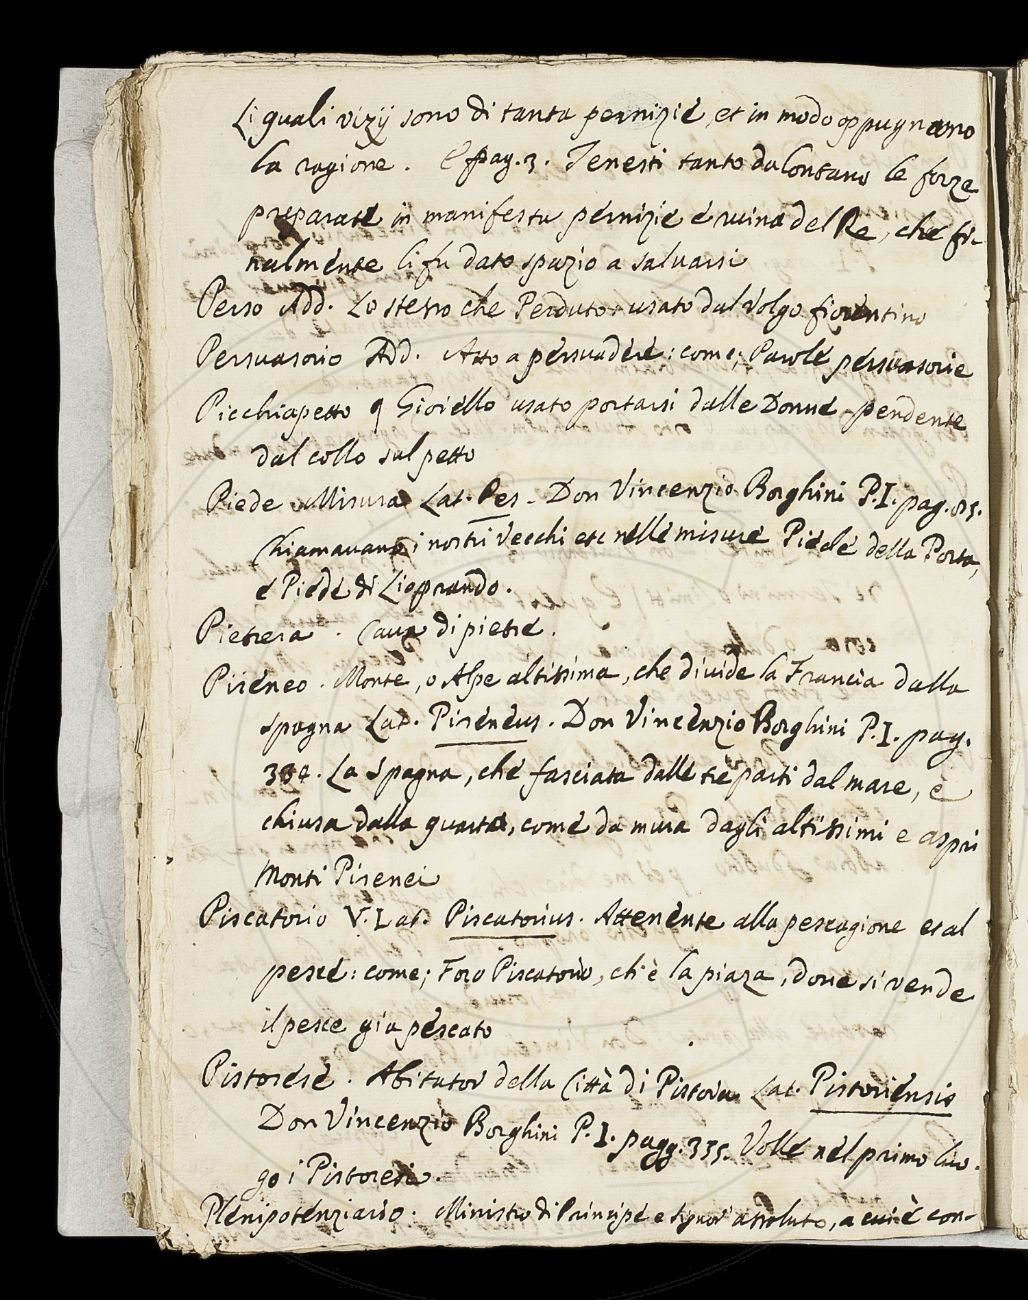 Li quali vizij sono di tanta pernizie, et in modo oppugnano
la ragione. E pag. 3. Tenesti tanto da lontano le forze
preparate in manifesta pernizie e ruina del Re, che fi-
nalmente li fu dato spazio a salvarsi
Perso Add. Lo stesso che Perduto usato dal volgo fiorentino
Persuasorio Add. Atto a persuadere: come; Parole persuasorie
Picchiapetto q Gioiello usato portarsi dalle Donne pendente
dal collo sul petto
Piede Misura Lat. Pes. Don Vincenzio Borghini P.I. pag.
Chiamavano i nostri Vecchi etc nelle misure Piede della Porta,
e Piede di Lioprando.
Pietrera. Cava di pietre.
Pireneo. Monte, o Alpe altissima, che divide la Francia dalla
Spagna Lat. Pireneus. Don Vincenzio Borghini P.I. pag.
La Spagna, che fasciata dalle tre parti dal mare, è
chiusa dalla quarta, come da mura dagli altissimi e aspri
Monti Pirenei
Piscatorio V. Lat. Piscatorius. Attenente alla pescagione et al
pesce: come; Foro Piscatorio, ch'è la piaza, dove si vende
il pesce gia pescato
Pistorese. Abitator della Città di Pistoia Lat. Pistoriensis
Don Vincenzio Borghini P.I. pagg. 335. Volle nel primo luo-
go i Pistoresi.
Plenipotenziario. Ministro di Principe e Signor assoluto, a cui è con-